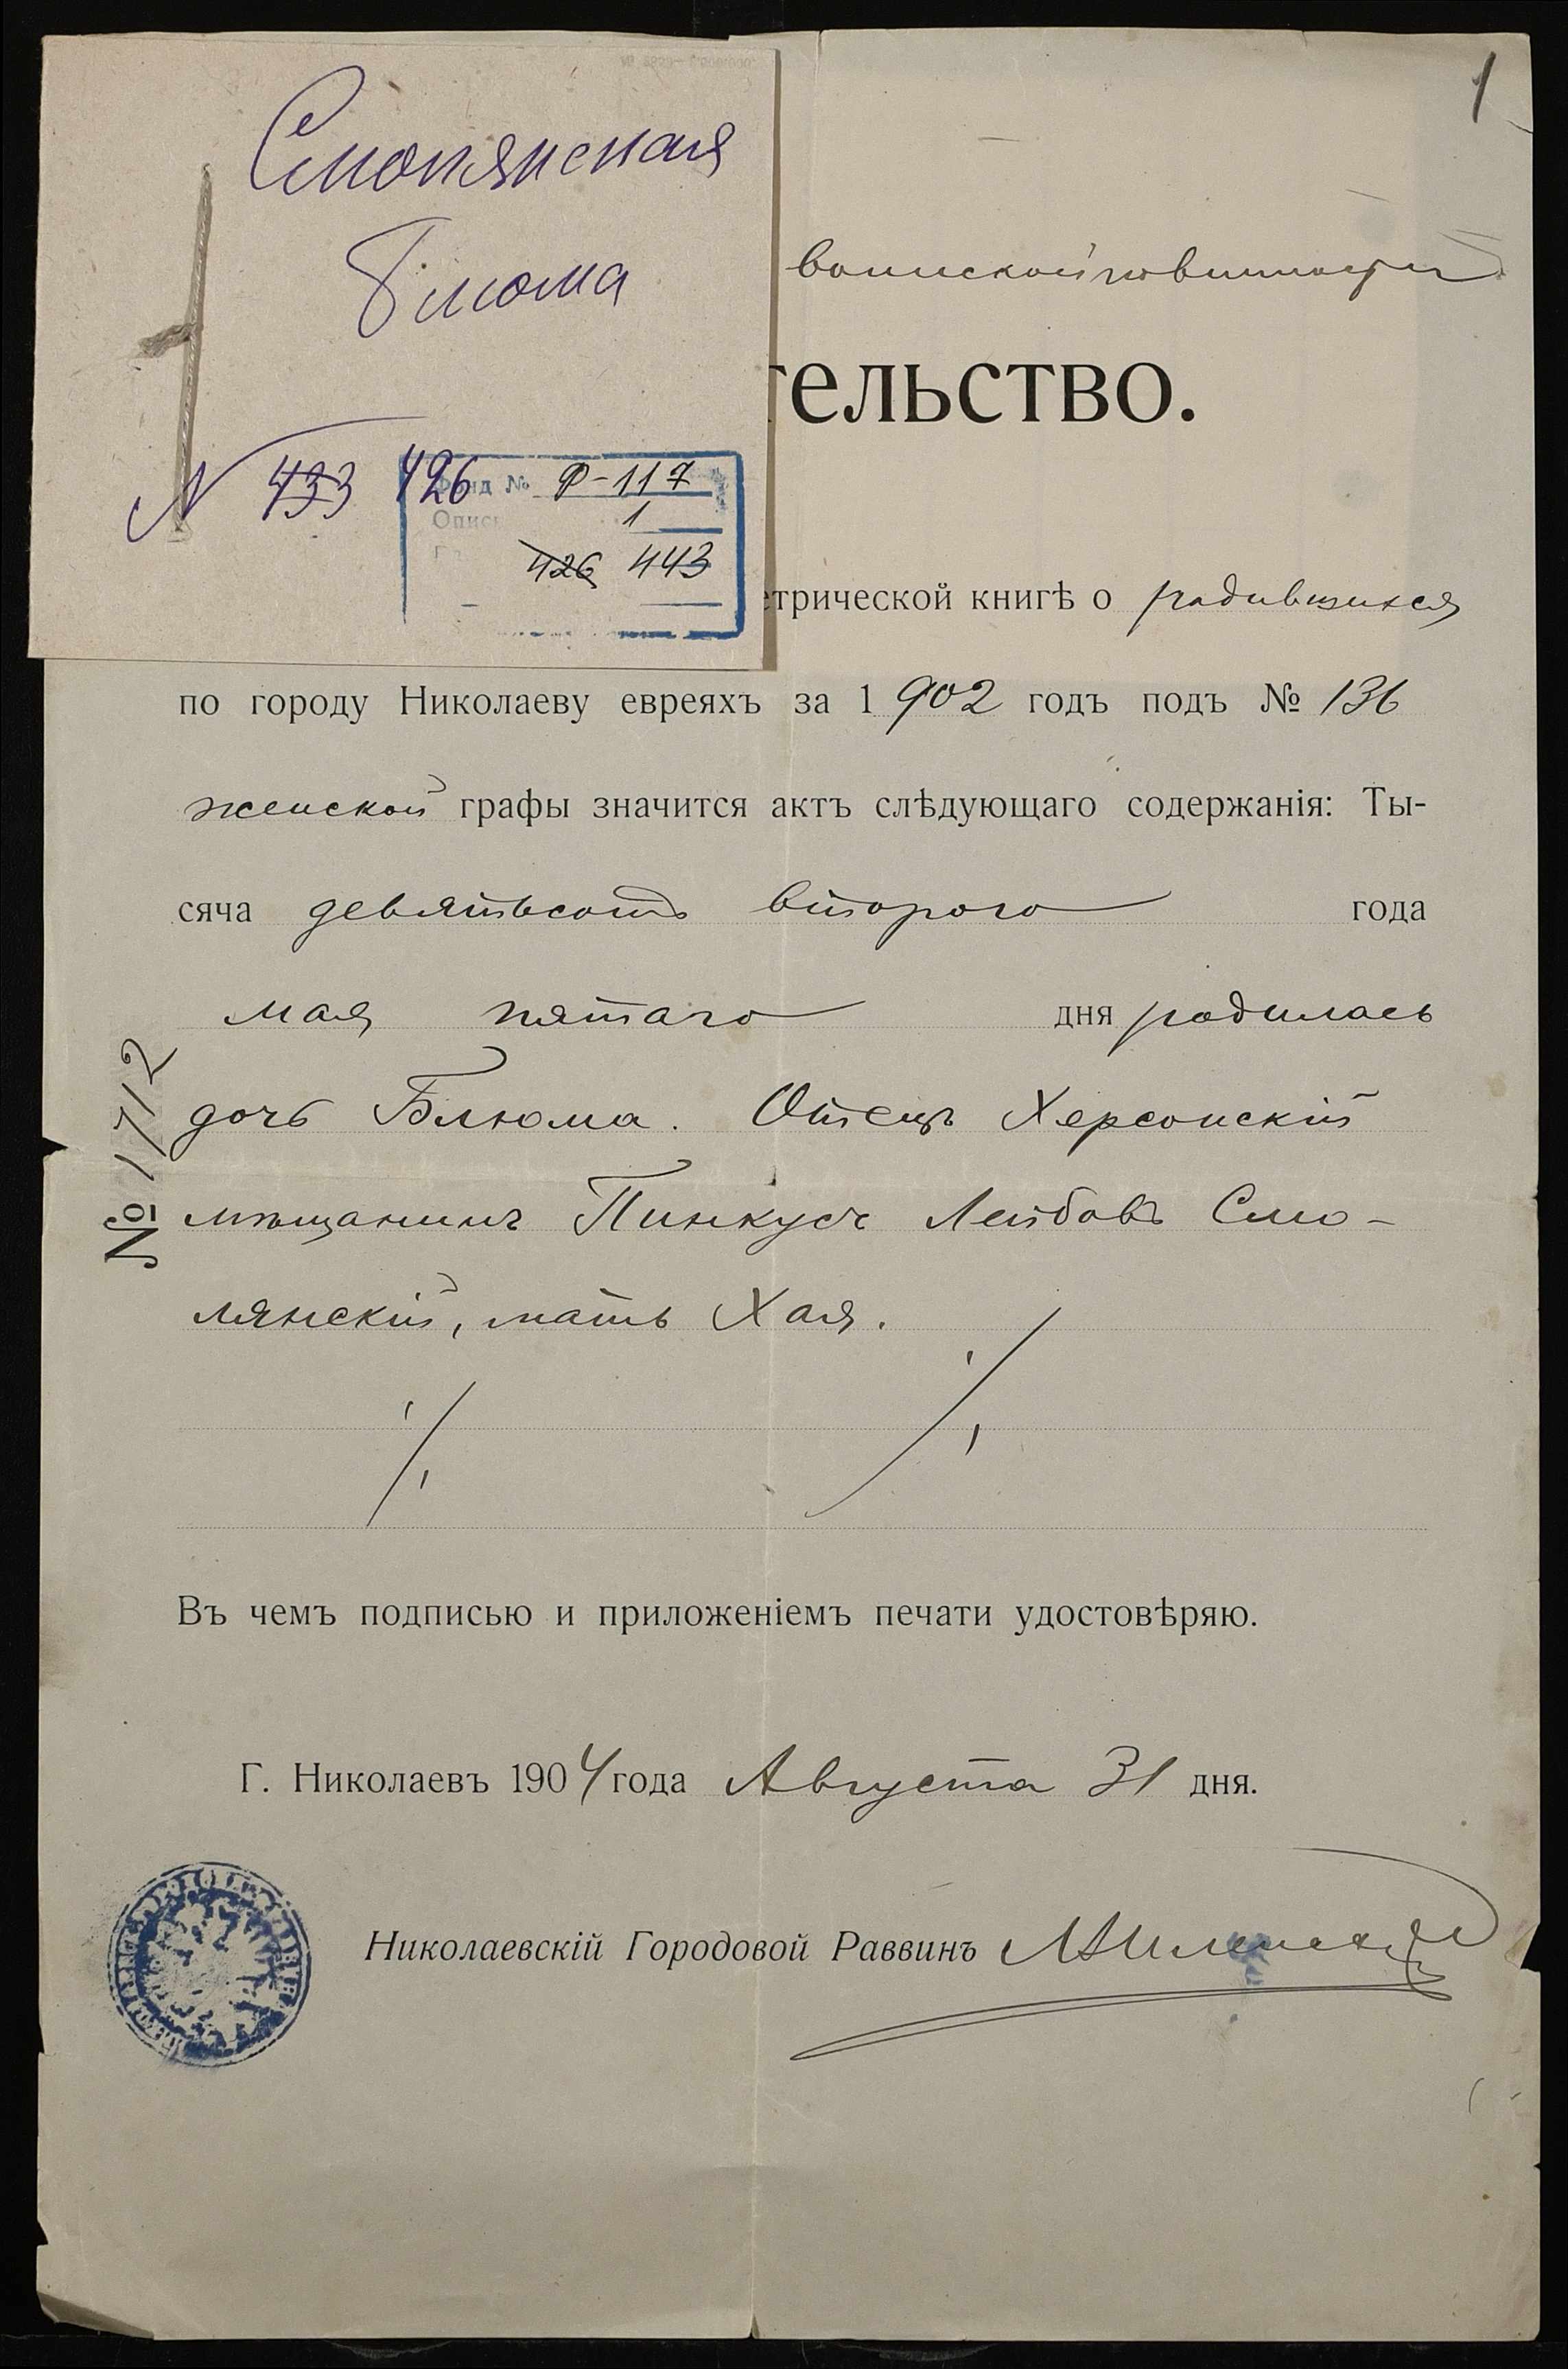 1
Смолянская
Блюма
N 433 426
Фонд № Р-117
Опись 1
426 443
воинской повинности
тельство.
етрической книгѣ о родившихся
по городу Николаеву евреяхъ за 1902 годъ подъ № 136
женской графы значится актъ слѣдующаго содержанія: Ты-
сяча девятьсотъ второго года
мая пятаго дня родилась
дочь Блюма. Отецъ Херсонскій
мѣщанинъ Пинкусъ Лейбовъ Смо-
лянскій, мать Хая.
№ 1712
Въ чемъ подписью и приложеніемъ печати удостовѣряю.
Г. Николаевъ 1904 года Августа 31 дня.
Николаевскій Городовой Раввинъ